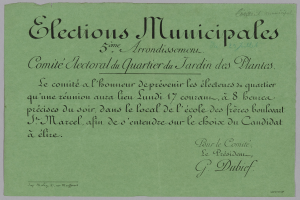 Elections Municipales
5ème Arrondissement
Comité Electoral du Quartier du Jardin des Plantes.
Le comité a l'honneur de prévenir les électeurs du quartier
qu'une réunion aura lieu Lundi 17 courant, à 8 heures
précises du soir, dans le local de l'école des frères boulevart
St Marcel, afin de s'entendre sur le choix du Candidat
à élire.
Pour le Comité
Le Président,
G Dubief